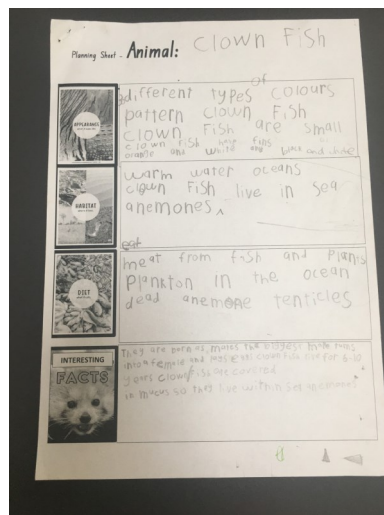 Planning Sheet - Animal: Clown Fish
APPEARANCE
of
different types colours
pattern clown Fish
clown Fish are small
clown Fish have fins
orange and white and black and white
HABITAT
warm water oceans
clown Fish live in sea
anemones
DIET
eat
meat from fish and plants
Plankton in the ocean
dead anemone tenticles
INTERESTING
FACTS
They are born as males the biggest male turns
into a female and
clown fish live for 6-10
years clown fish are covered
in mucus so they live within sea anemones